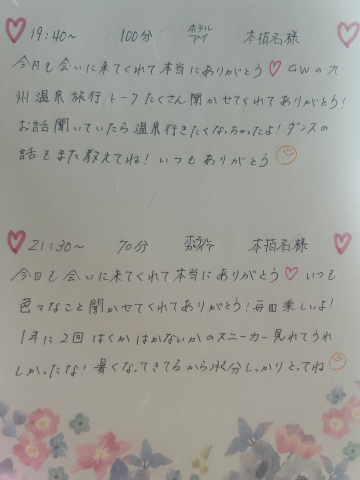 19:40〜 100分 ホテル アイ 本指名様
今月も会いに来てくれて本当にありがとう♡ GWの九
州温泉旅行トークたくさん聞かせてくれてありがとう!
お話聞いていたら温泉行きたくなっちゃったよ!ダンスの
話もまた教えてね!いつもありがとう
21:30〜 70分 本指名様
今日も会いに来てくれて本当にありがとう♡ いつも
色々なこと聞かせてくれてありがとう!毎回楽しいよ!
1年に2回はくかはかないかのスニーカー見れてうれ
しかったな!暑くなってきてるから水分しっかりとってね